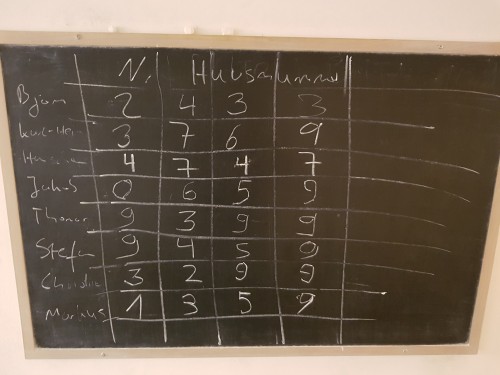 Nr. Hausnummer
Björn 2 4 3 3
3 7 6 9
4 7 4 7
Jakob 0 6 5 9
Thomas 9 3 9 9
Stefan 9 4 5 9
3 2 9 9
Markus 1 3 5 9